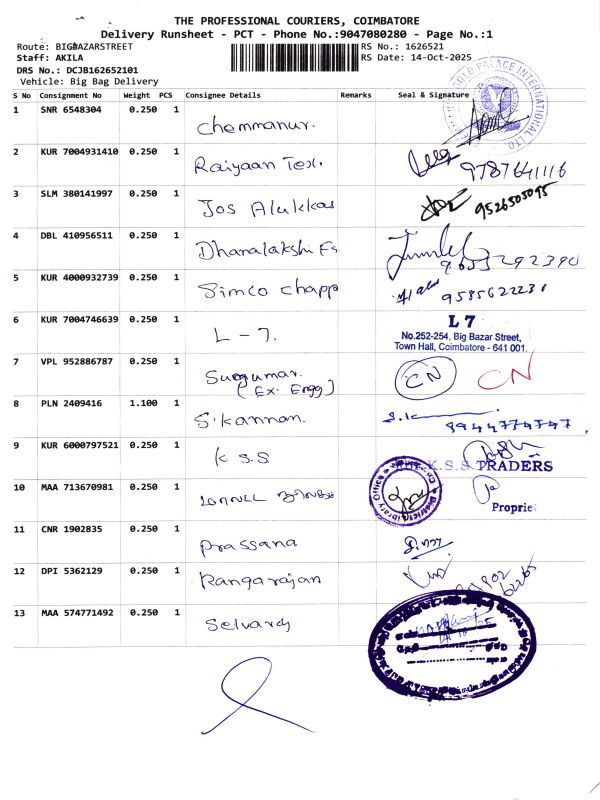 THE PROFESSIONAL COURIERS, COIMBATORE
Delivery Runsheet - PCT - Phone No.:9047080280 - Page No.:1
Route: BIGBAZARSTREET RS No.: 1626521
Staff: AKILA RS Date: 14-Oct-2025
DRS No.: DCJB162652101
Vehicle: Big Bag Delivery
S No Consignment No Weight PCS Consignee Details Remarks Seal & Signature
GOLD PALACE INTERNATIONAL LTD.
1 SNR 6548304 0.250 1 Chemmanur.
2 KUR 7004931410 0.250 1 Raiyaan Tex. 9787641116
3 SLM 380141997 0.250 1 Jos Alukkas 9526505095
4 DBL 410956511 0.250 1 Dhanalakshi 9655292390
5 KUR 4000932739 0.250 1 Simco chapp 9585622231
6 KUR 7004746639 0.250 1 L - 7. L 7
No.252-254, Big Bazar Street,
Town Hall, Coimbatore - 641 001.
7 VPL 952886787 0.250 1 Sugumar. CN CN
(Ex. Engg)
8 PLN 2409416 1.100 1 S. Kannan. S.K 8944774747
9 KUR 6000797521 0.250 1 K S S K.S.S TRADERS
10 MAA 713670981 0.250 1 மாவட்ட District Library Office
Proprie
11 CNR 1902835 0.250 1 Prassana
12 DPI 5362129 0.250 1 Rangarajan
13 MAA 574771492 0.250 1 Selvaraj